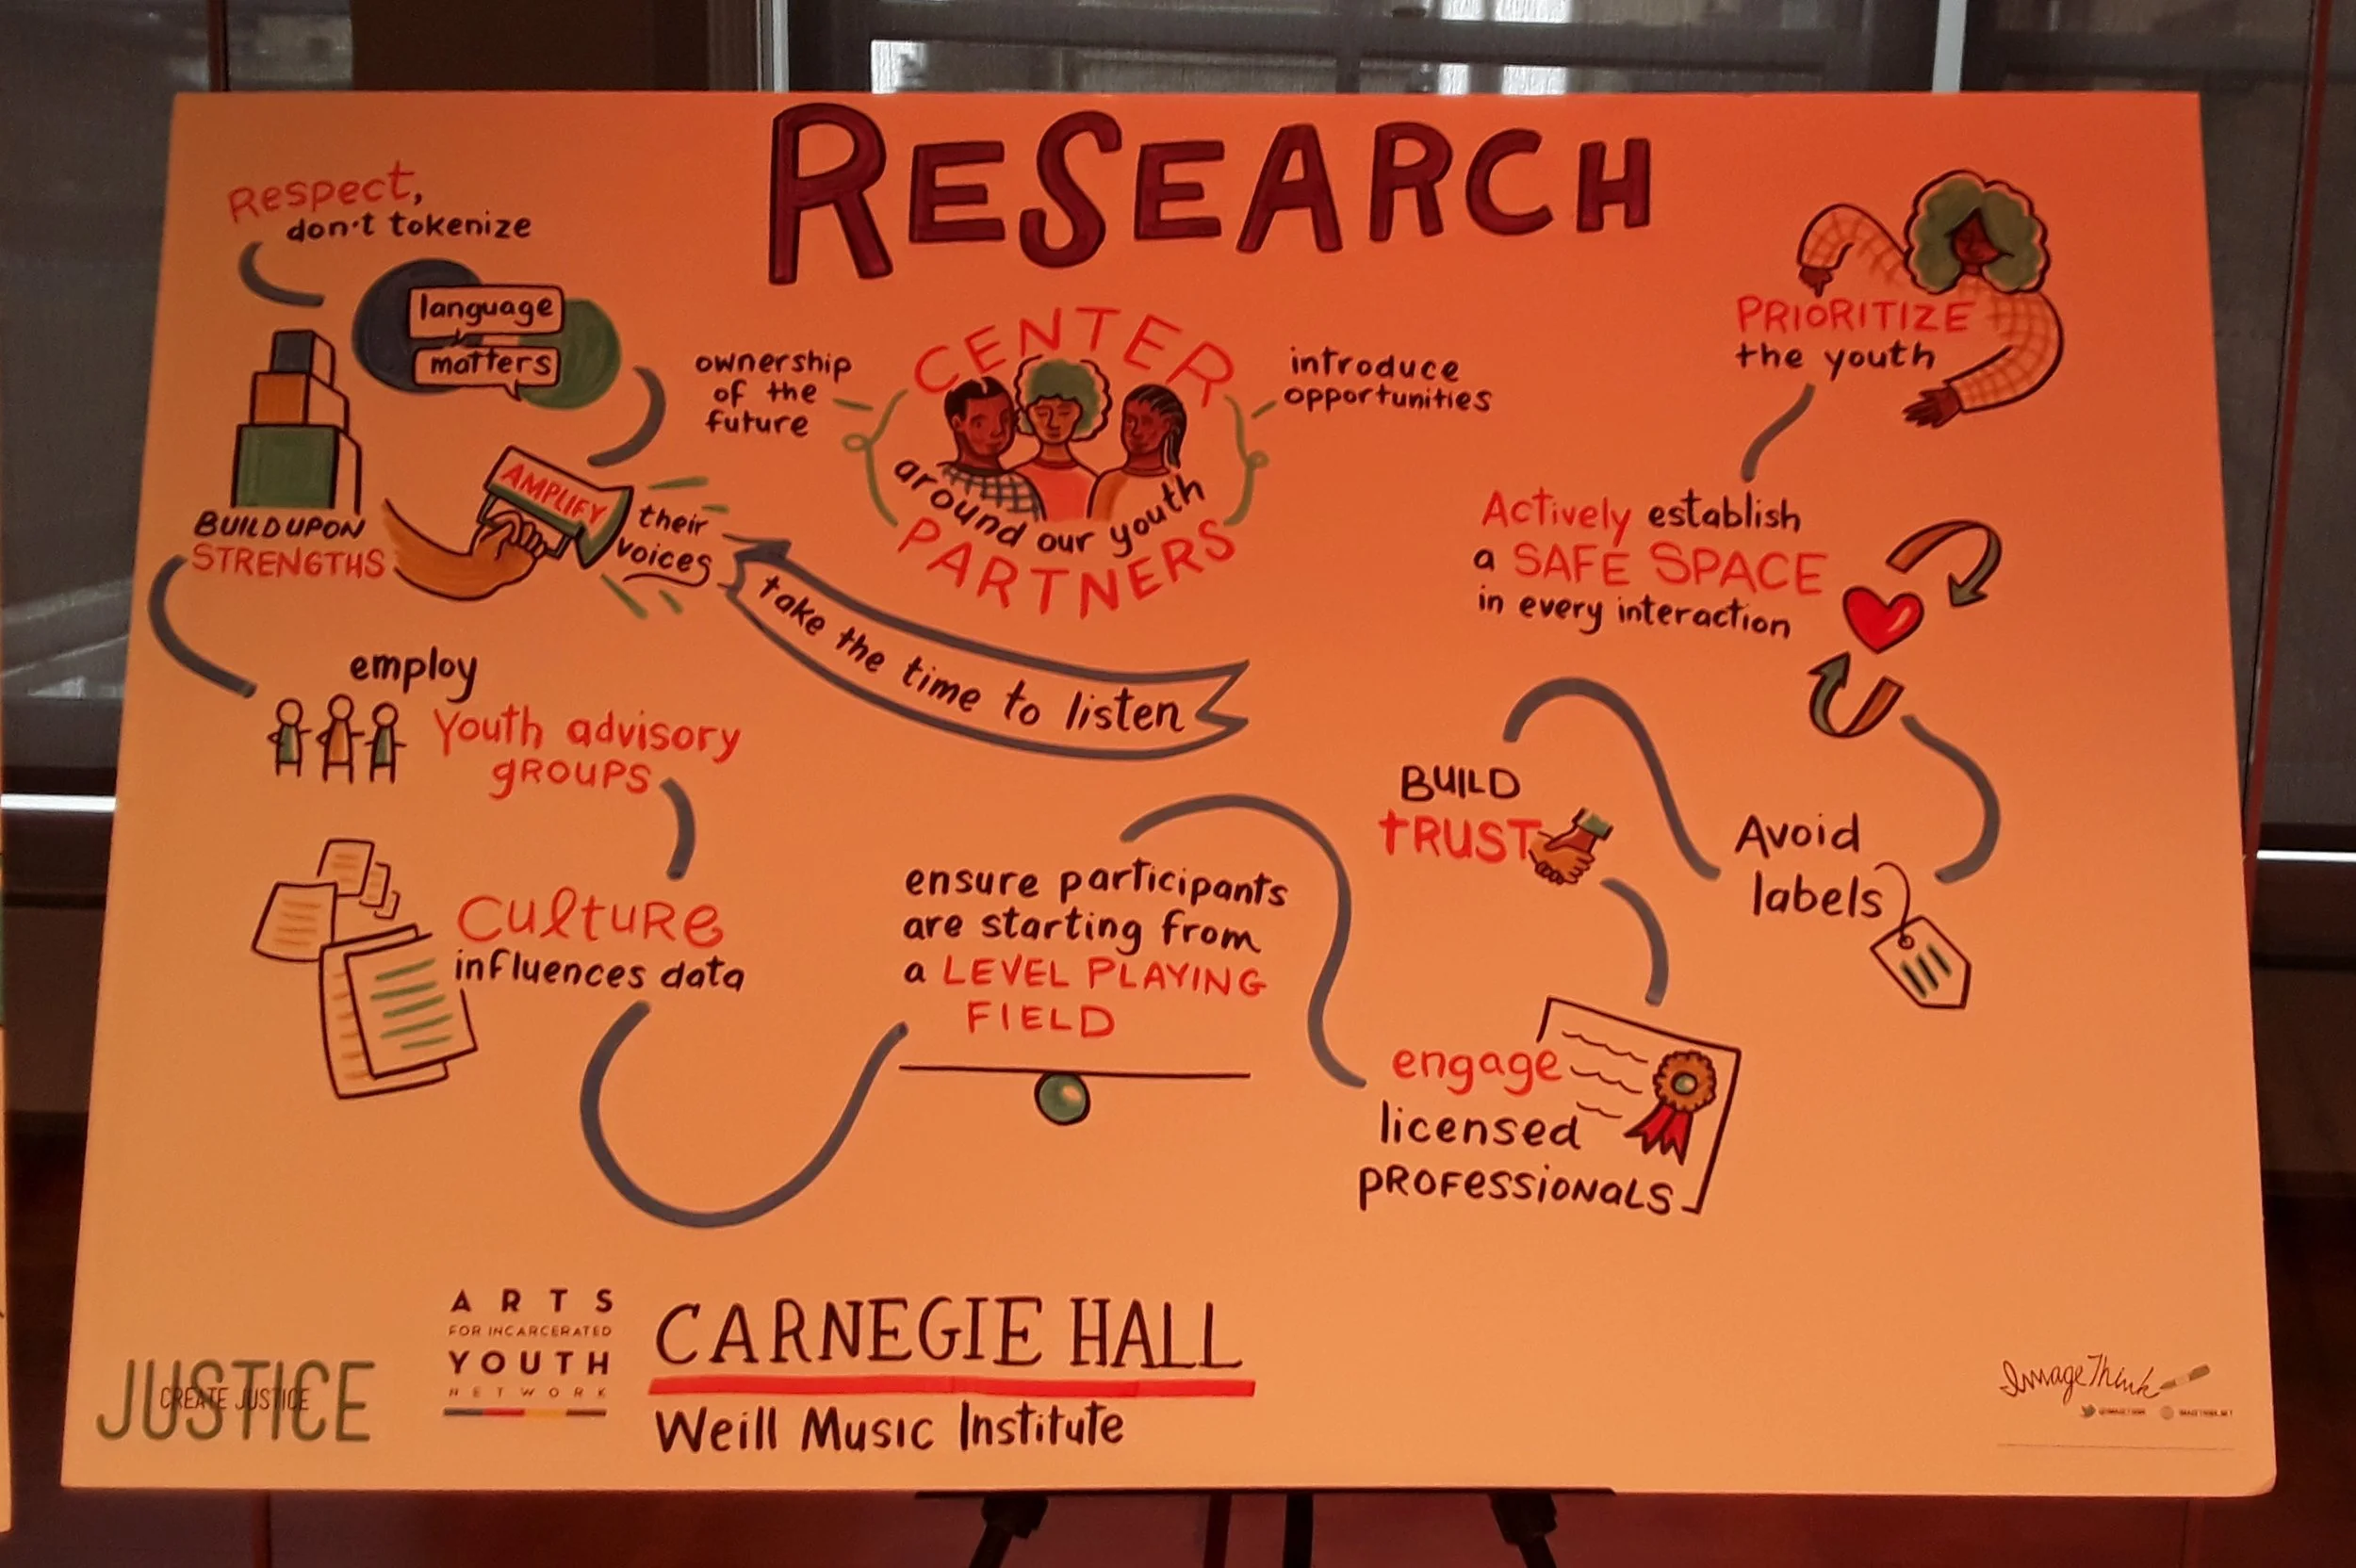 RESEARCH
Respect,
don't tokenize
language
matters
BUILD UPON
STRENGTHS
AMPLIFY
their
voices
take the time to listen
ownership
of the
future
CENTER
around our youth
PARTNERS
introduce
opportunities
PRIORITIZE
the youth
Actively establish
a SAFE SPACE
in every interaction
Avoid
labels
BUILD
tRUST
engage
licensed
PROFESSIONALS
ensure participants
are starting from
a LEVEL PLAYING
FIELD
Culture
influences data
employ
Youth advisory
gROUPS
JUSTICE
CREATE JUSTICE
ARTS
FOR INCARCERATED
YOUTH
NETWORK
CARNEGIE HALL
Weill Music Institute
ImageThink